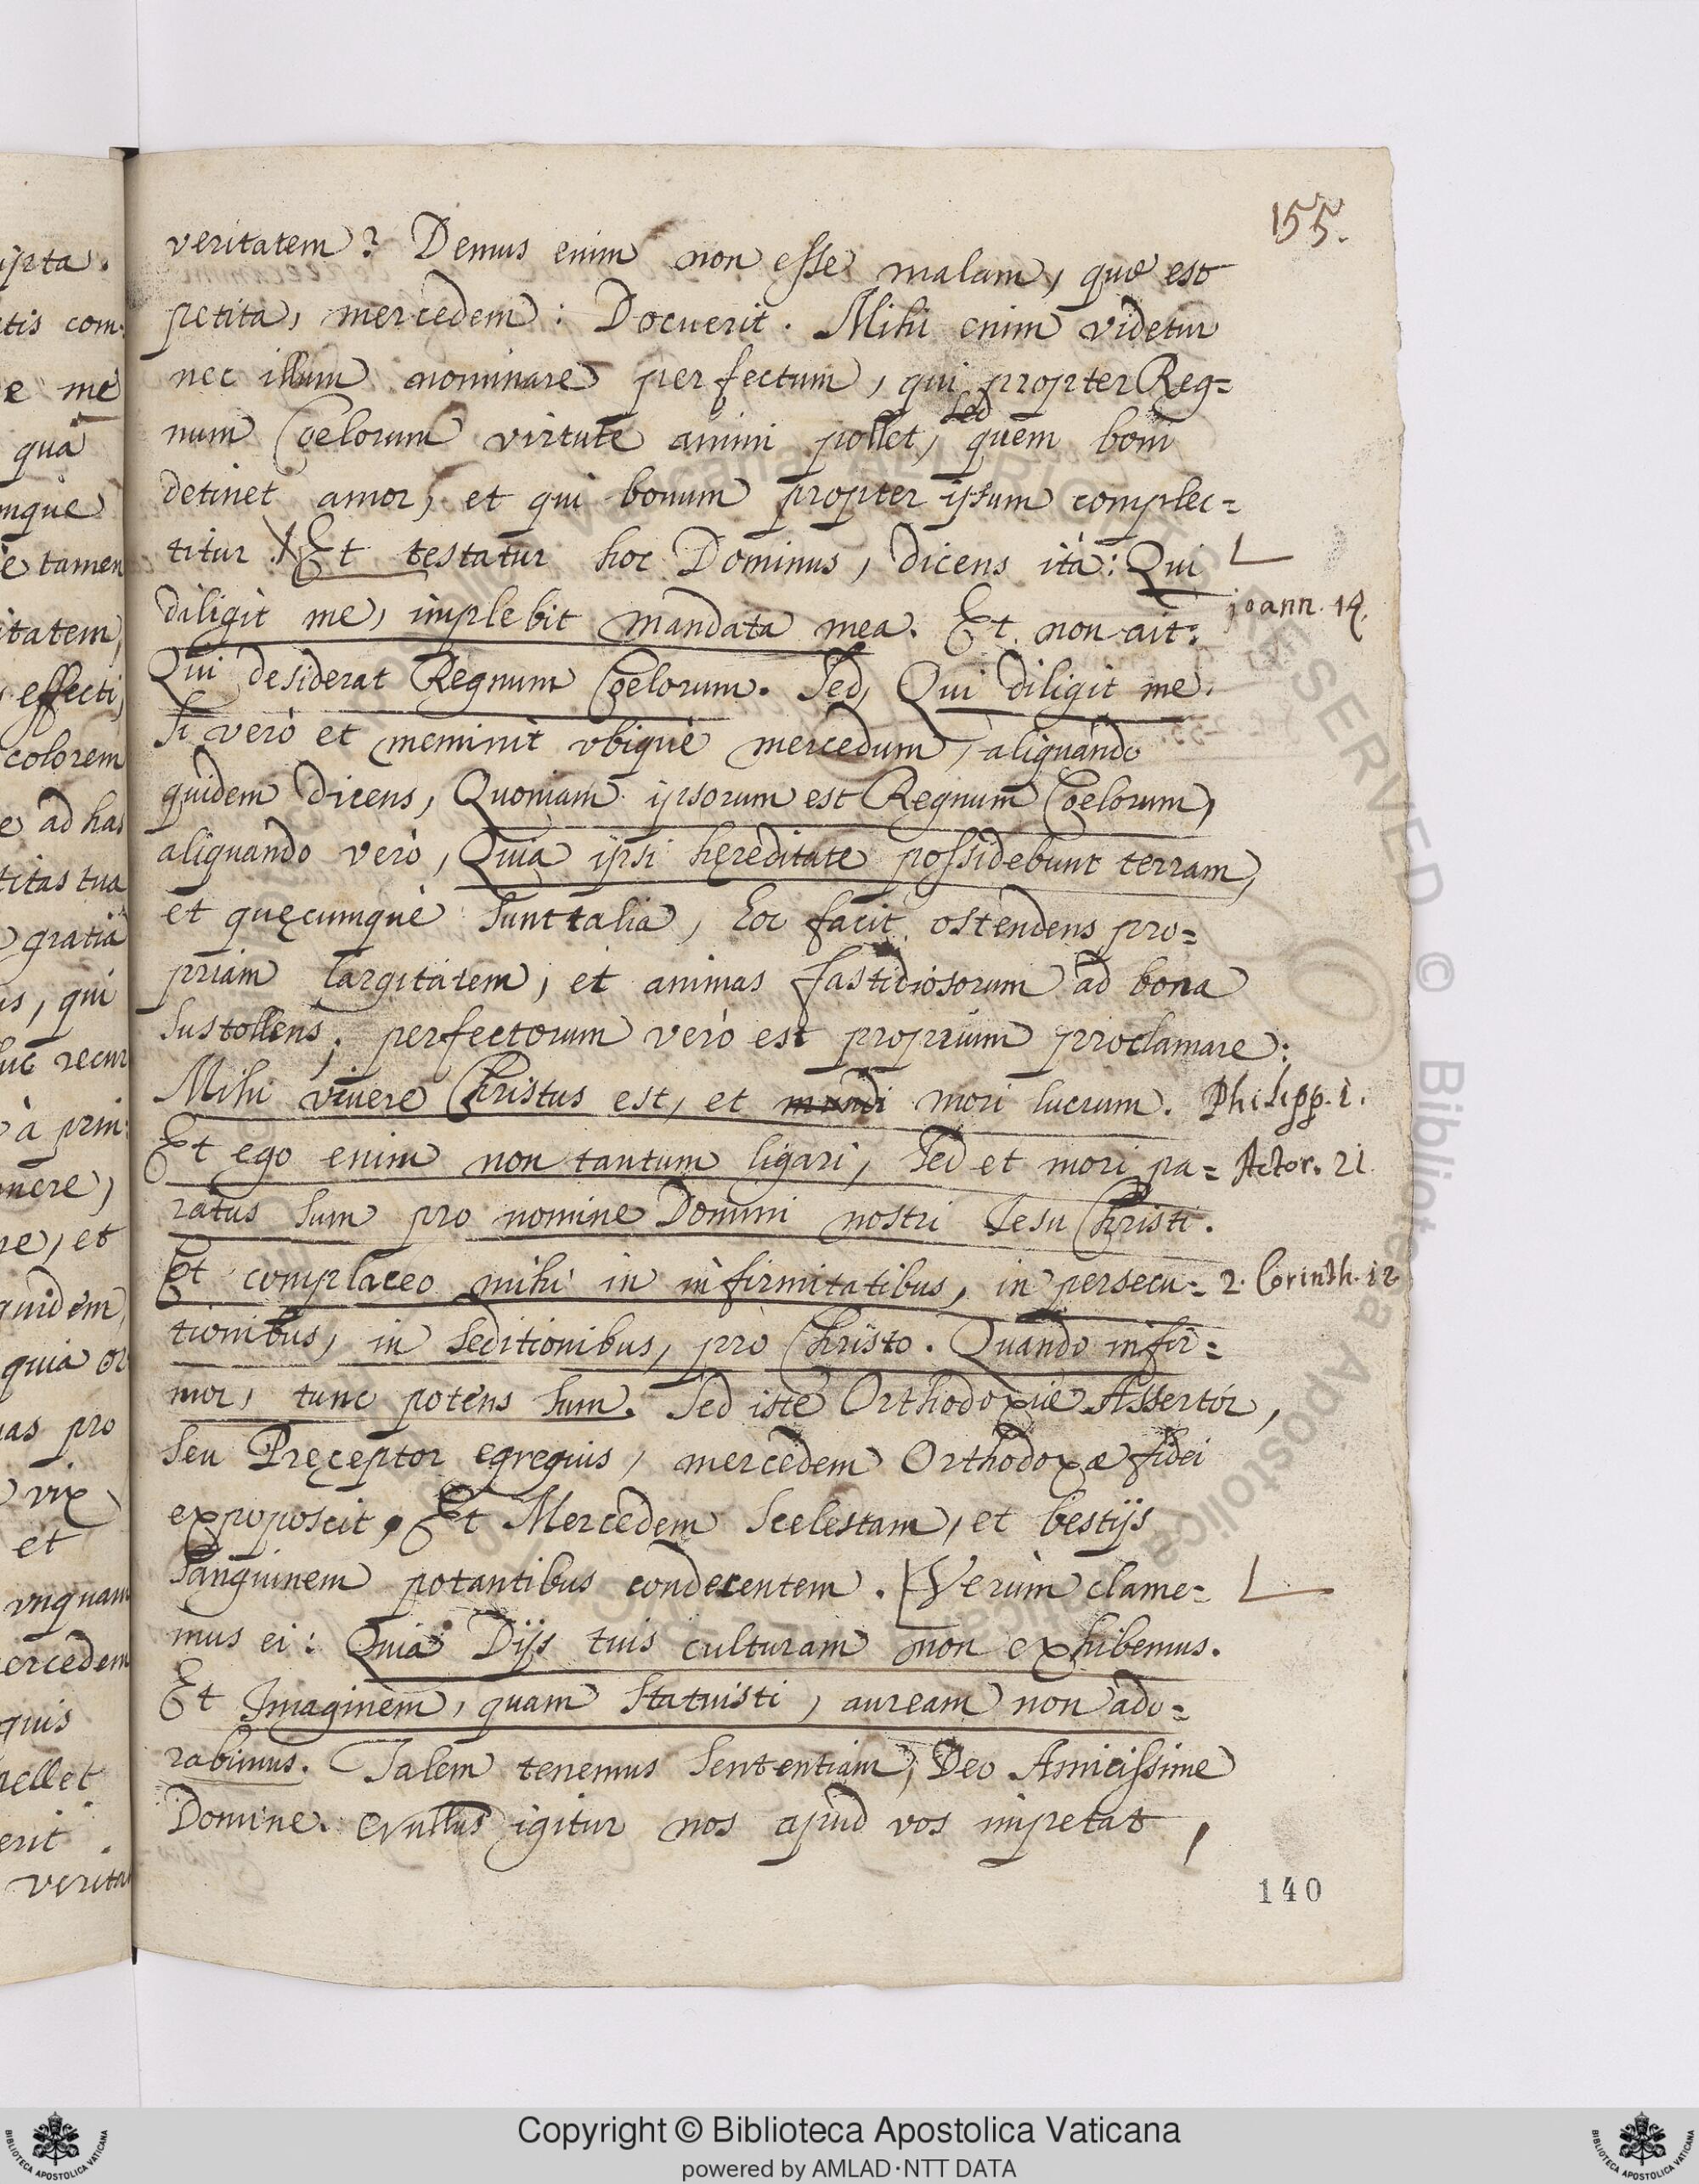 155.
veritatem? Demus enim non esse malam, quæ est
petita, mercedem: Docuerit. Mihi enim videtur
nec illum nominare perfectum, qui propter Reg=
num Coelorum virtute animi pollet, sed quem boni
detinet amor, et qui bonum propter ipsum complec=
titur. Et testatur hoc Dominus, dicens ità: Qui
diligit me, implebit mandata mea. Et non ait:
joann. 14.
Qui desiderat Regnum Coelorum. Sed, Qui diligit me.
Si verò et meminit vbiquè mercedum, aliquàndo
quidem dicens, Quoniam ipsorum est Regnum Coelorum,
aliquàndo verò, Quia ipsi hęreditate possidebunt terram,
et quęcumquè sunt talia, hoc facit ostendens pro=
priam largitàtem, et animas fastidiosorum ad bona
sustollens; perfectorum verò est proprium proclamare:
Mihi vivere Christus est, et mundi mori lucrum.
Philipp. 1.
Et ego enim non tantum ligari, sed et mori pa=
Actor. 21.
ratus sum pro nomine Domini nostri Iesu Christi.
Et complaceo mihi in infirmitatibus, in persecu=
2. Corinth. 12
tionibus, in seditionibus, prò Christo. Quando infir=
mor, tunc potens sum. Sed iste Orthodoxiæ Assertor,
seu Pręceptor egregius, mercedem Orthodoxæ fidei
exposcit, Et Mercedem Scelestam, et bestijs
sanguinem potantibus condecentem. Verùm clame=
mus ei: Quia Dijs tuis culturam non exhibemus.
Et Imaginem, quam statuisti, auream non ado=
rabimus. Talem tenemus sententiam, Deo Amicissime
Domine. Nullus igitur nos apud vos impetat,
140
ipta.
tis com:
e me
quà
mquè
è tamen
itatem,
effecti,
colorem
e ad has
titas tua
gratia
is, qui
uc recur
à prin:
re, et
quidem,
quia
as pro
vix
et
vnquam
ercedem
quis
nellet
erit.
verita
Copyright © Biblioteca Apostolica Vaticana
powered by AMLAD·NTT DATA